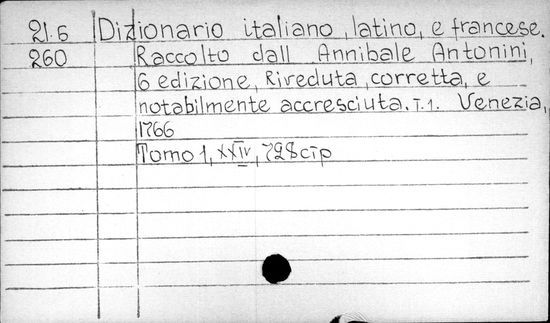 21.6 Dizionario italiano, latino, e francese.
260 Raccolto dall Annibale Antonini,
6 edizione, Riveduta, corretta, e
notabilmente accresciuta. T.1. Venezia,
1766
Tomo 1, XXIV, 728 стр